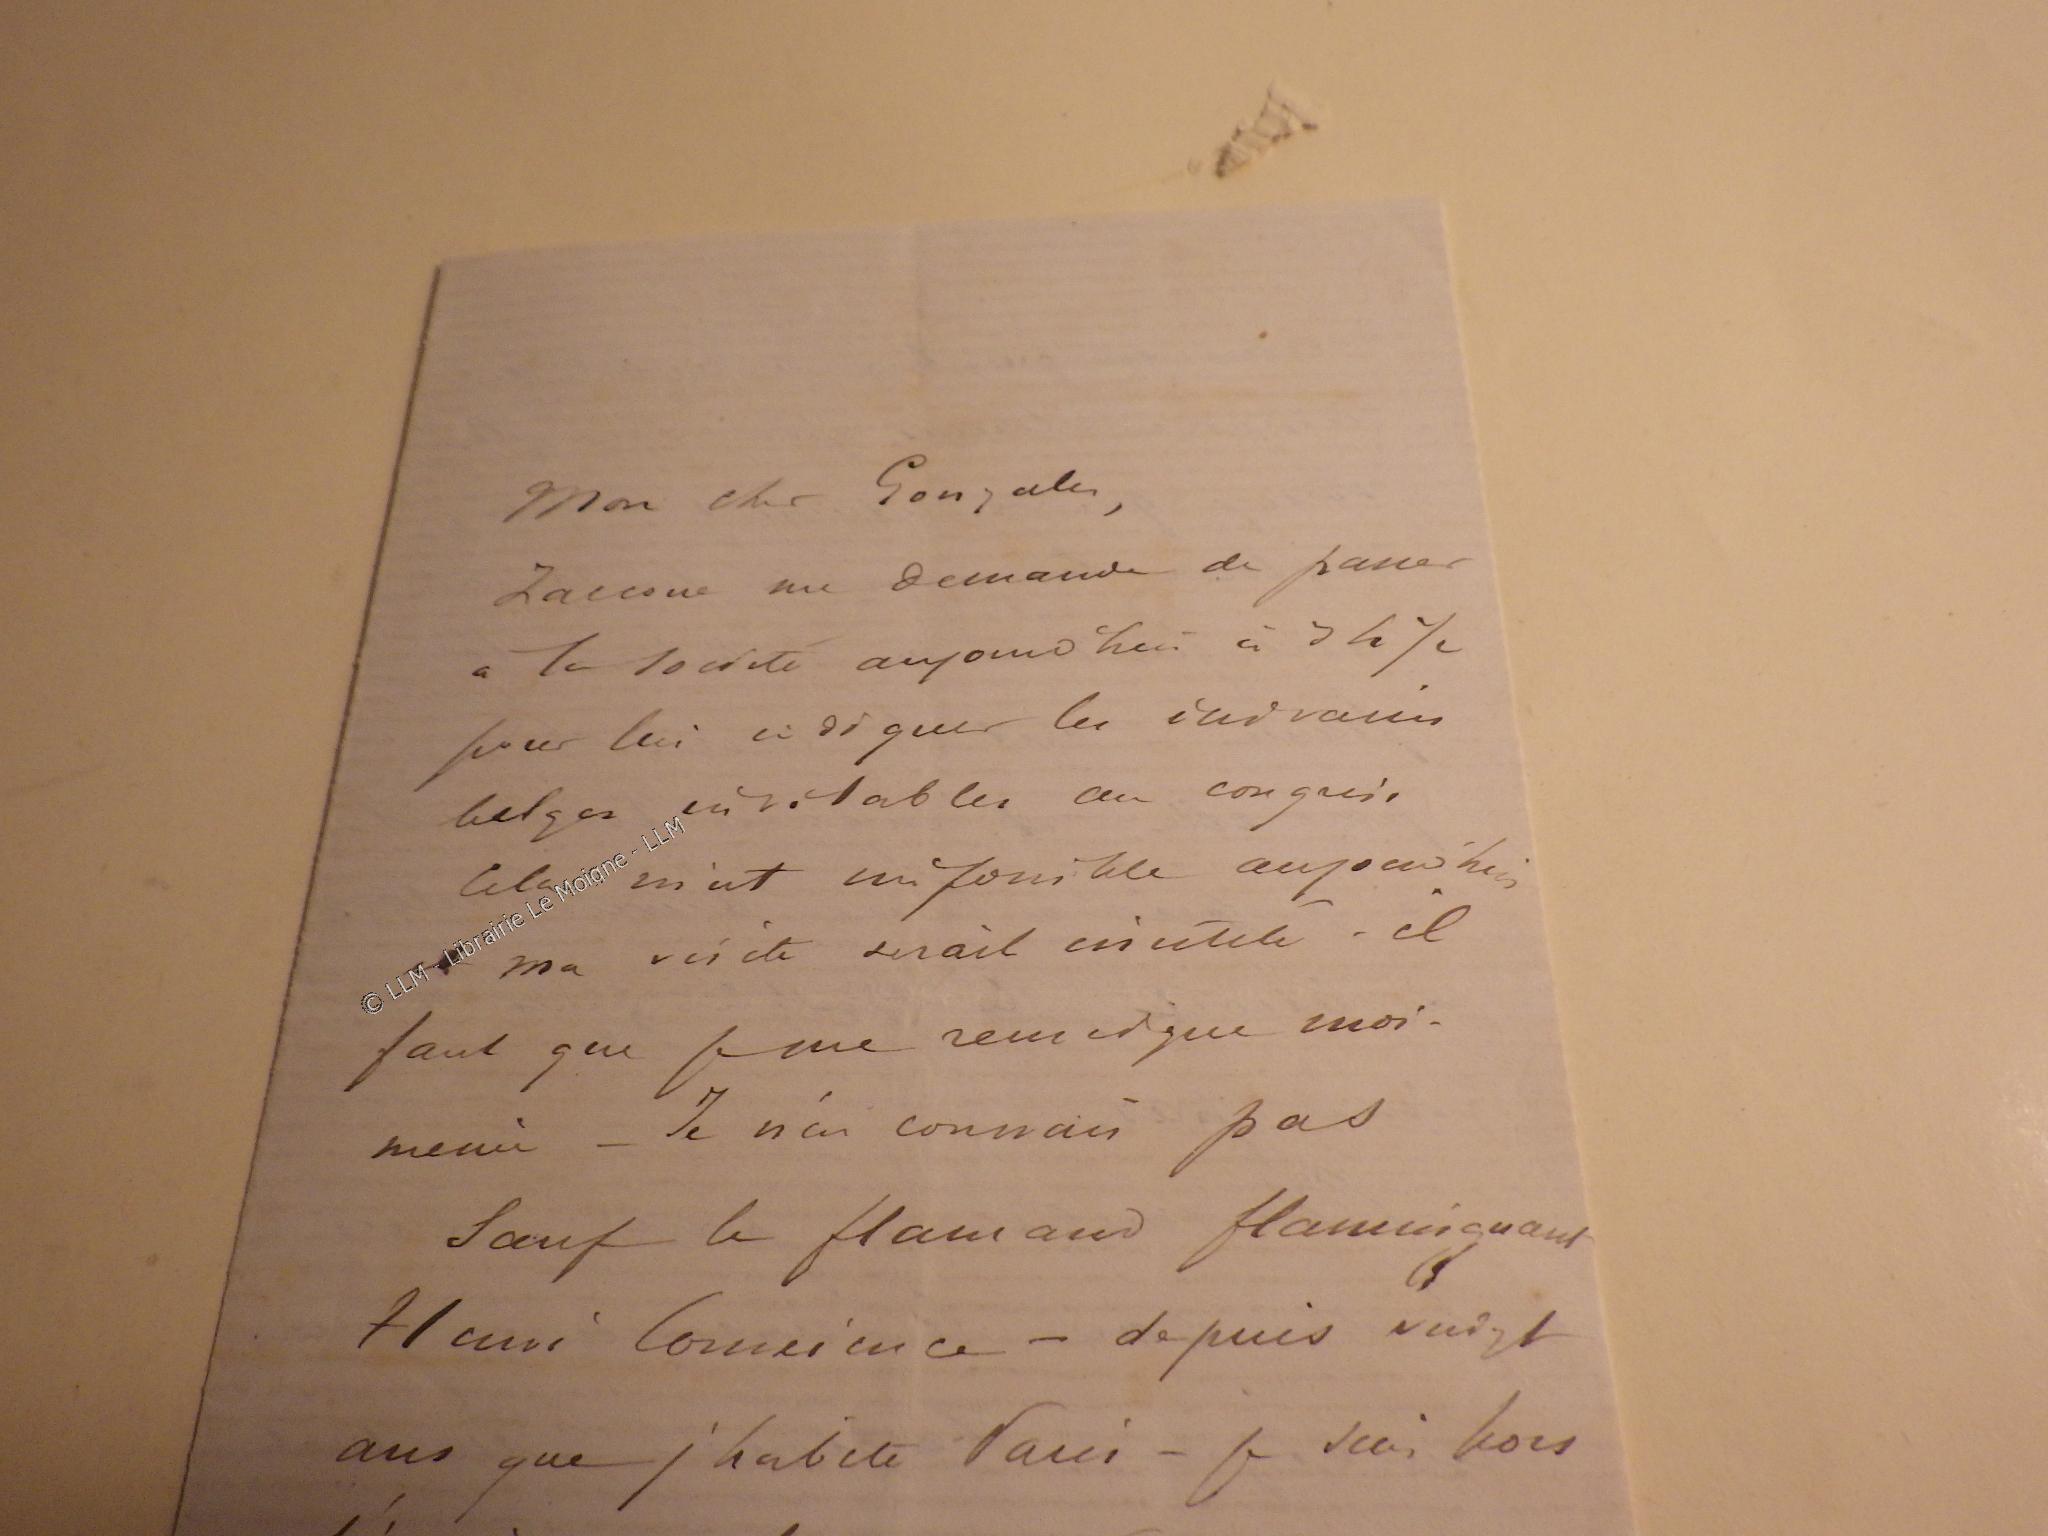 Mon cher Gonzales,
Zaccone me demande de passer
a la société aujourd'hui à 3 h 1/2
pour lui indiquer les écrivains
belges invitables au congrès
Cela m'est impossible aujourd'hui
ma visite serait inutile - il
faut que je me renseigne moi-
même - Je n'en connais pas
Sauf le flamand flamingant
Henri Conscience - depuis vingt
ans que j'habite Paris - je suis hors
© LLM - Librairie Le Moigne - LLM